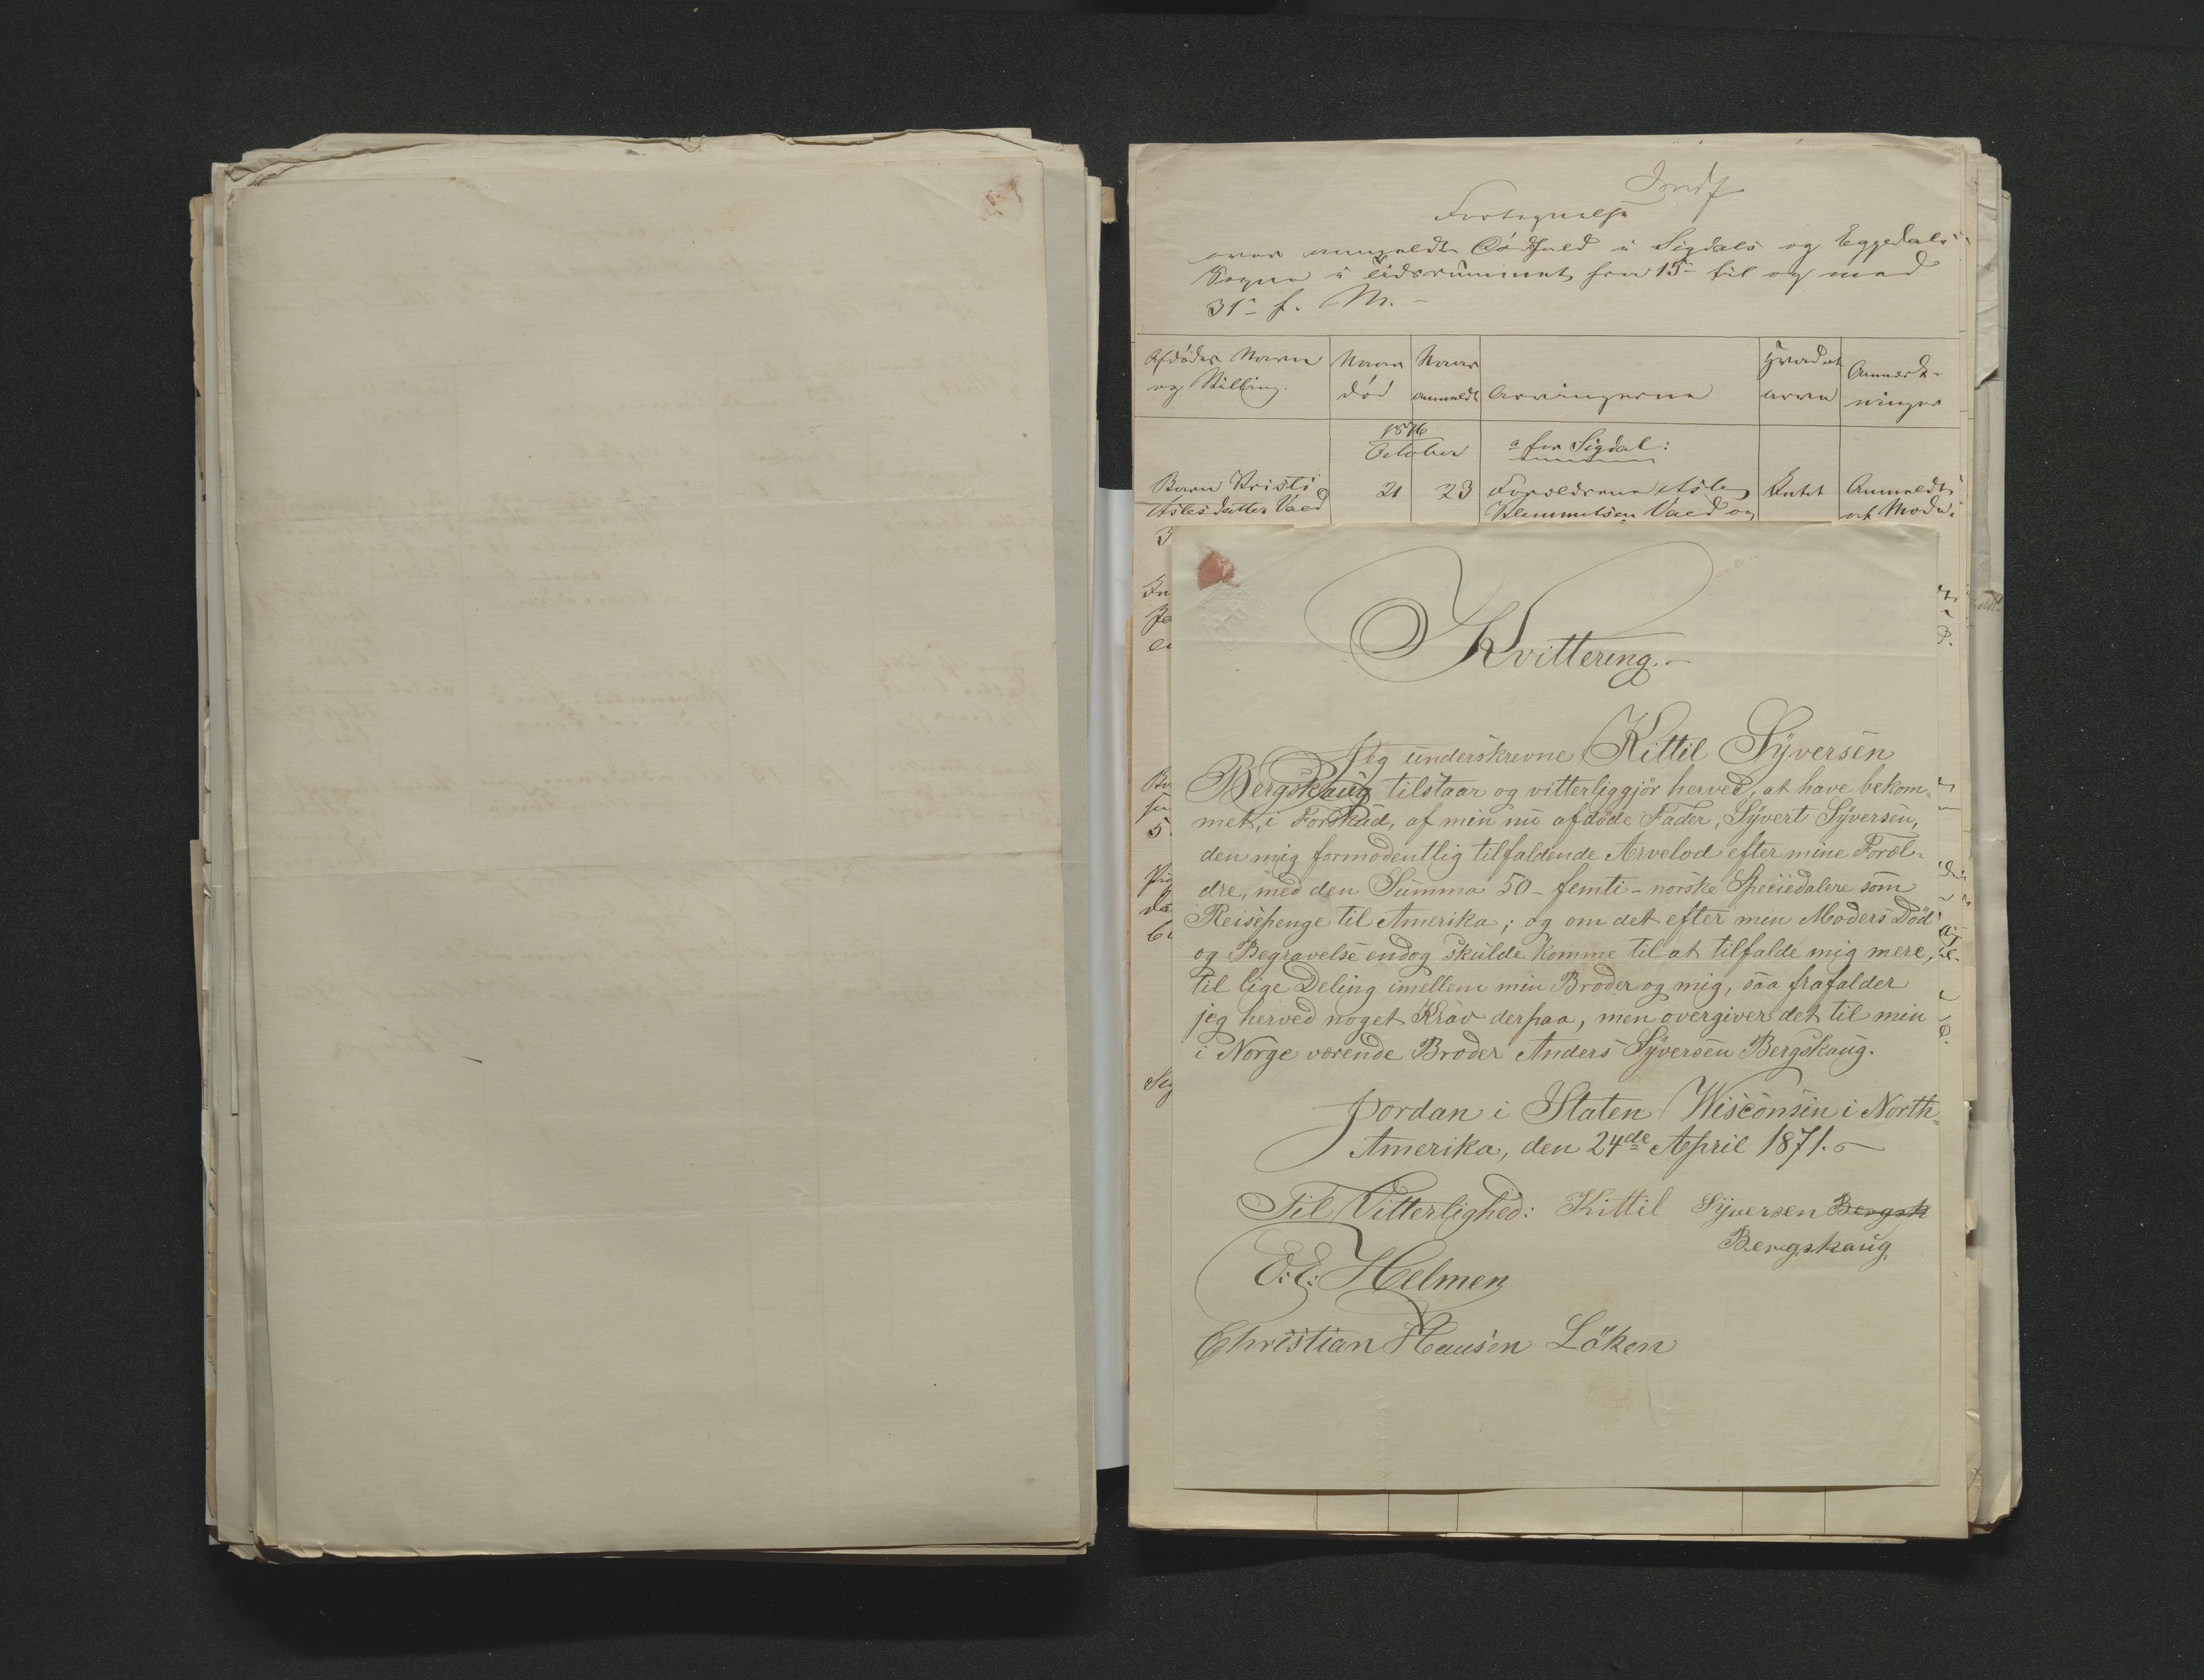 Fortegnelse
over anmeldte Dödsfald i Sigdals og Eggedals
Sogne i Tidsrummet fra 15de til og med
31te f. M.
Afdødes Navn og Stilling. Naar död Naar anmeldt Arvingerne Hvad at arve Anmærkninger
1876
October a for Sigdal:
Barn Kristi 21 23 Forældrene Asle Intet Anmeldt
Aslesdatter Vaed Klemmetsen Vaed og af Mode
Kvittering.
Jeg underskrevne Kittil Syversen
Bergskaug tilstaar og vitterliggjör herved, at have bekom-
met, i Forskud, af min nu afdöde Fader, Syvert Syversen,
den mig formodentlig tilfaldende Arvelod efter mine Foræl-
dre, med den Summa 50 - femti - norske Speciedalere som
Reisepenge til Amerika; og om det efter min Moders Död
og Begravelse endog skulde komme til at tilfalde mig mere,
til lige Deling imellem min Broder og mig, saa frafalder
jeg herved noget Krav derpaa, men overgiver det til min
i Norge værende Broder Anders Syversen Bergskaug.
Jordan i Staten Wisconsin i North-
Amerika, den 24de April 1871.
Til Vitterlighed: Kittil Syversen Bergsk
Bergskaug
E: E: Helmen
Christian Hansen Löken